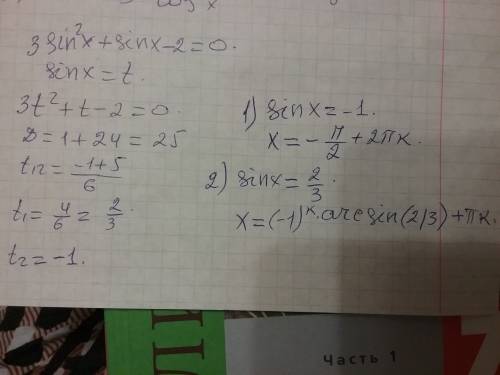 3 sin²x + sinx - 2 = 0.
sinx = t.
3t² + t - 2 = 0.
D = 1 + 24 = 25
t₁₂ = (-1+5)/6
t₁ = 4/6 = 2/3.
t₂ = -1.
1) sinx = -1.
x = -π/2 + 2πк.
2) sinx = 2/3.
x = (-1)ᴷ·arcsin(2/3) + πк.
Часть 1